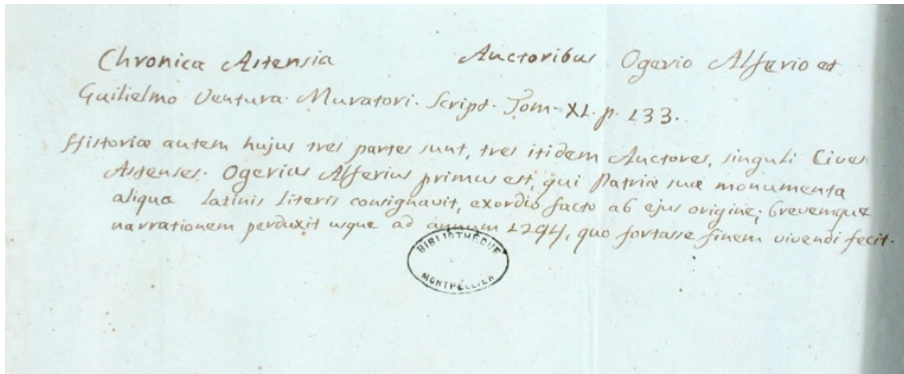 Chronica Astensia Auctoribus Ogerio Alferio et
Guilielmo Ventura. Muratori. Script. Tom. XI. p. 133.
Historiæ autem hujus tres partes sunt, tres itidem Auctores, singuli Cives
Astenses. Ogerius Alferius primus est, qui Patriæ suæ monumenta
aliqua Latinis literis consignavit, exordio facto ab ejus origine; brevemque
narrationem perduxit usque ad annum 1294, quo fortasse finem vivendi fecit.
BIBLIOTHÈQUE
MONTPELLIER